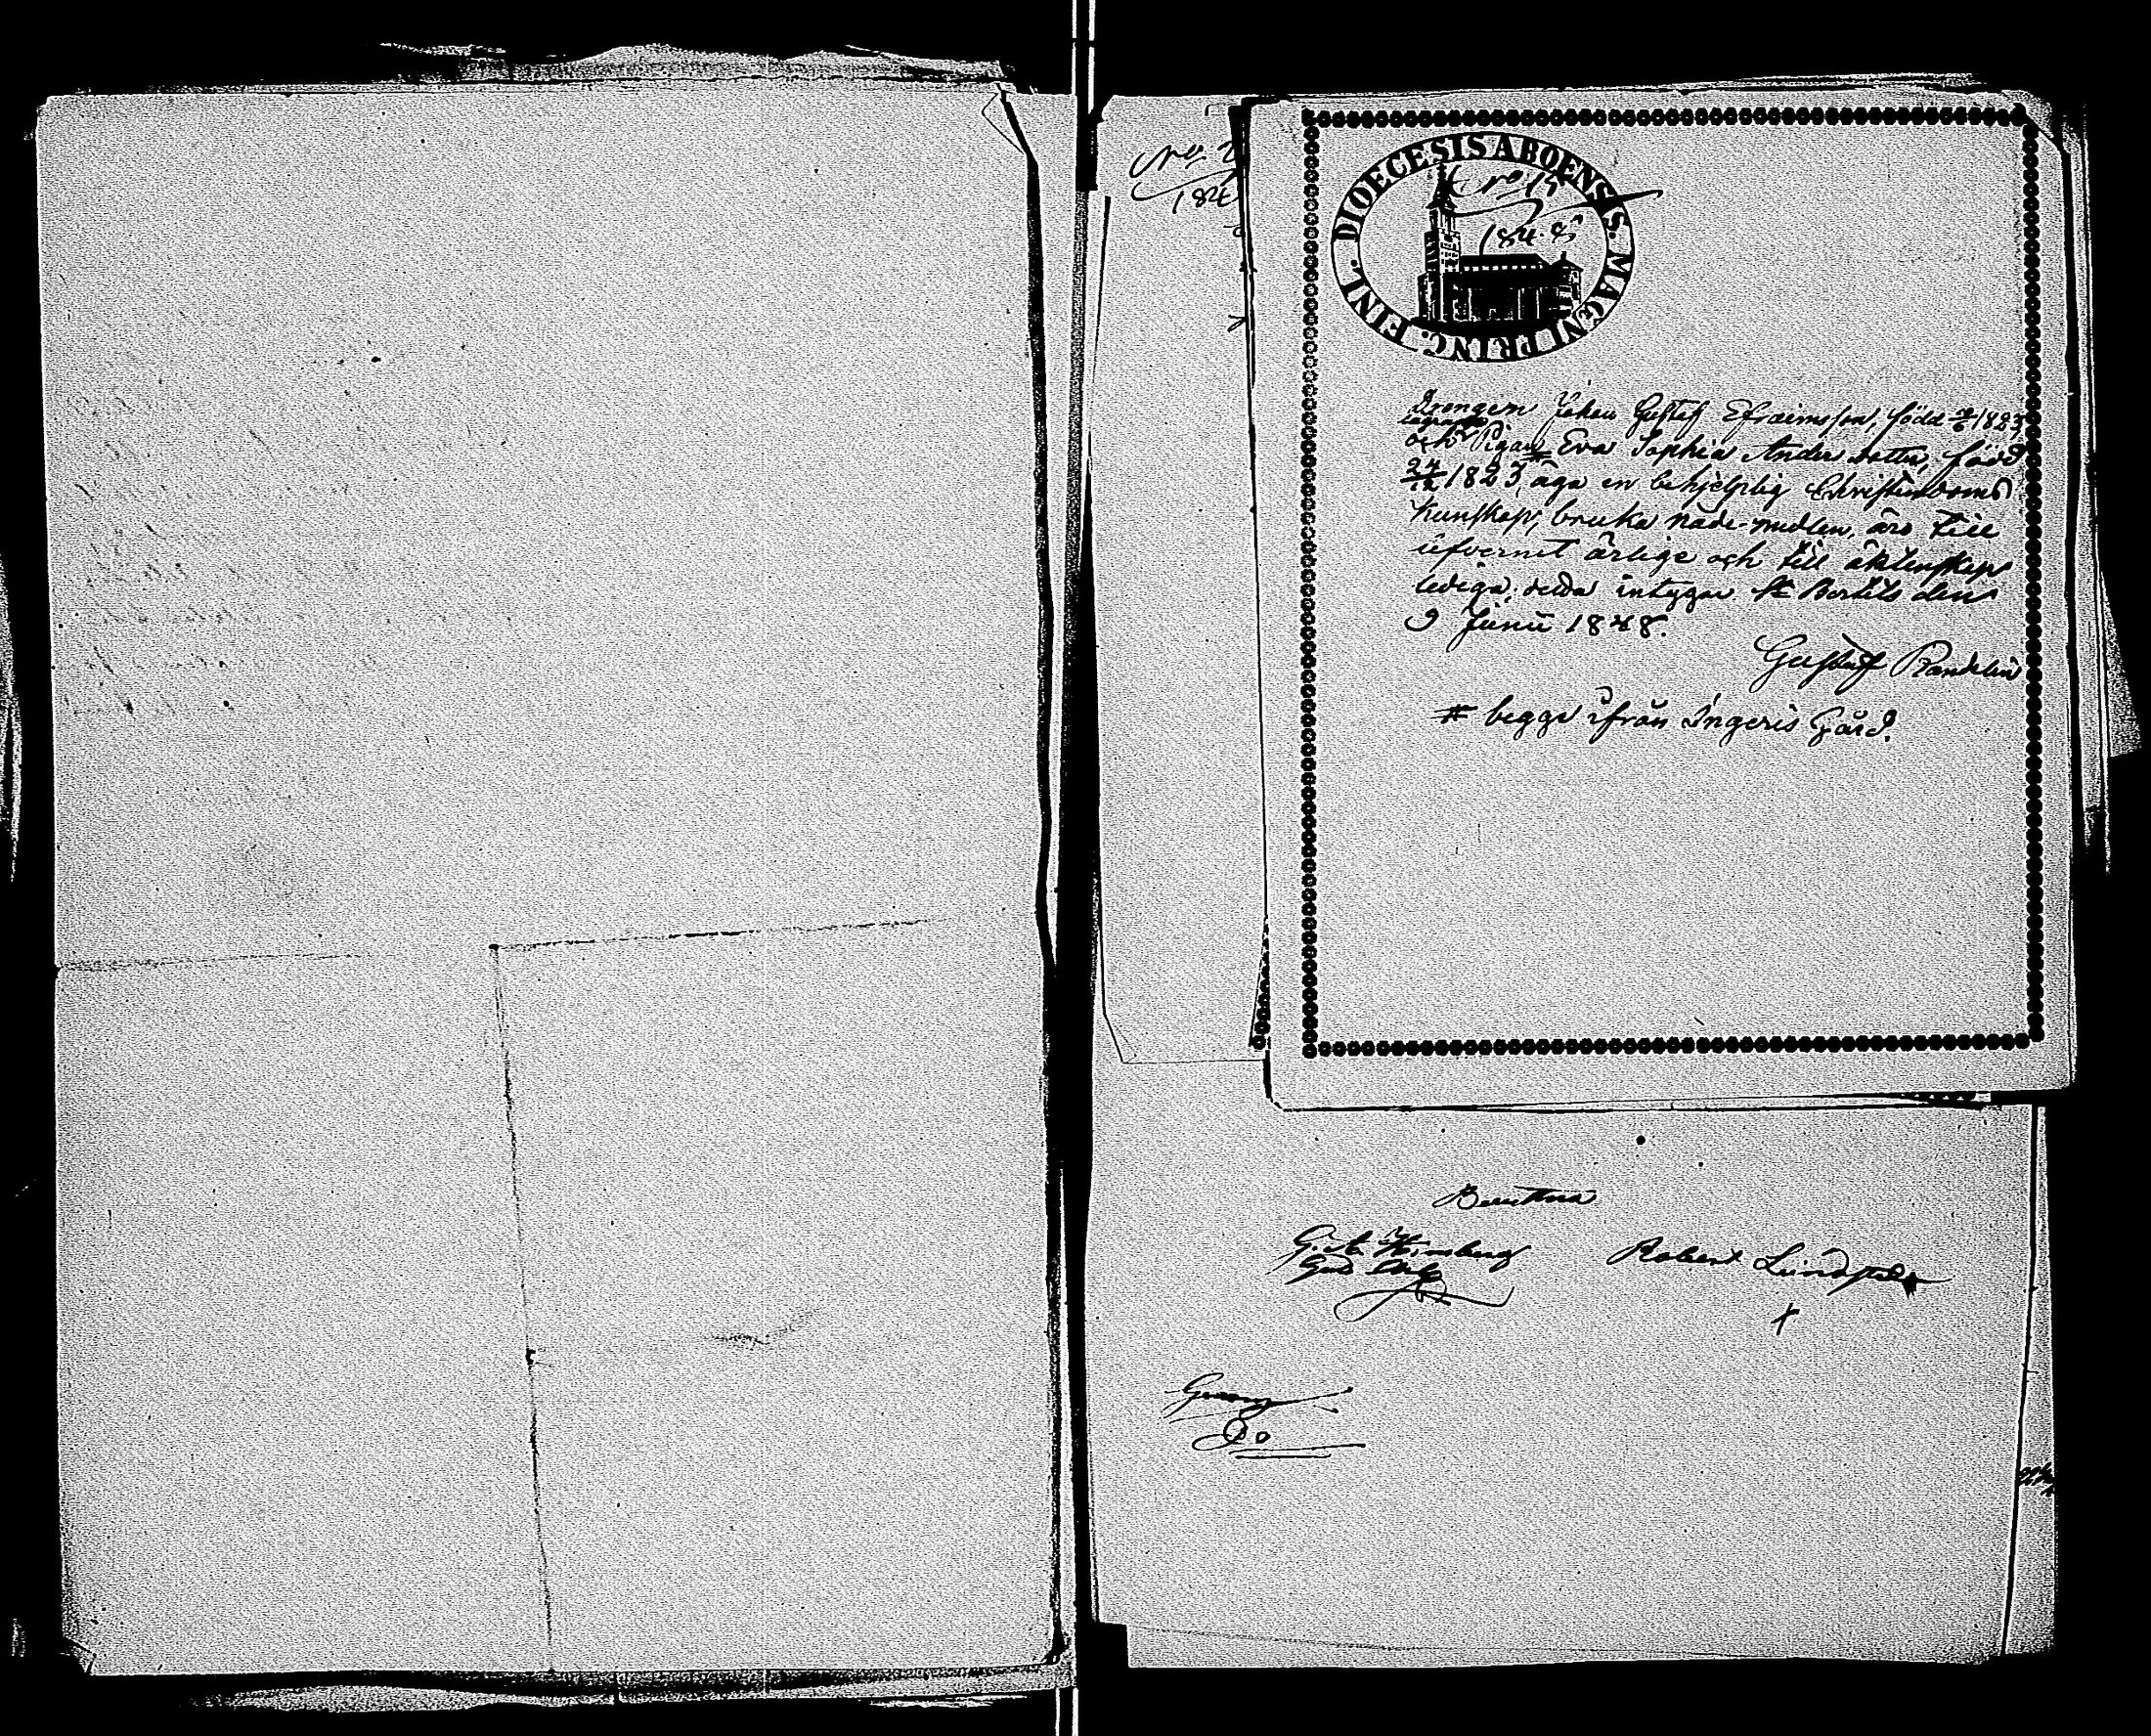 No 2
184
DIOECESIS ABOENSIS. MAGNI PRINC. FINL.
No 15
1848
Drengen Johan Gustaf Efraimsson, född 1823,
och Pigan # Eva Sophia Anders dotter, född
24/12 1823, äga en behjelplig Christendoms
kunskap, bruka nåde-medlen, äro till
lefvernet ärlige och till äktenskap
lediga; detta intygar St Bertils den
9 Junii 1848.
Gustaf Randelin
# begge ifrån Ingeris Gård.
Bevittna
G. A.
Robert Lundstedt